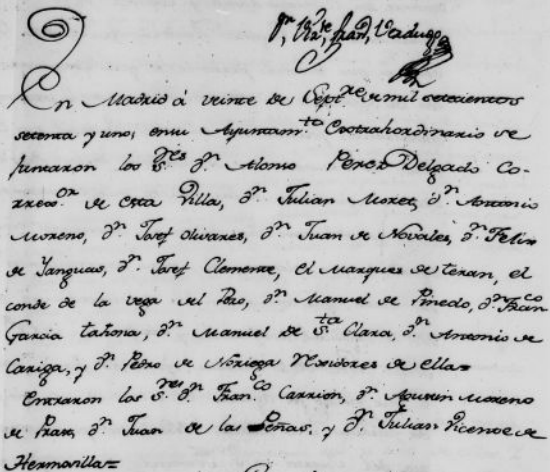 Dn. Vte. Franco. Verdugo
En Madrid á veinte de Sepre. de mil setecientos
setenta y uno; en su Ayuntamto. Extrahordinario se
juntaron los Sres. Dn. Alonso Perez Delgado Co-
rregor. de esta Villa, Dn. Julian Moret, Dn. Antonio
Moreno, Dn. Josef Olivares, Dn. Juan de Novales, Dn. Felix
de Yanguas, Dn. Josef Clemente, el Marques de teran, el
conde de la vega del Pozo, Dn. Manuel de Pinedo, Dn. Franco.
Garcia tahona, Dn. Manuel de Sta. Clara, Dn. Antonio de
Cariga, y Dn. Pedro de Noriega Rexidores de ella=
Entraron los Sres. Dn. Franco. Carrion, Dn. Agustin Moreno
de Prado, Dn. Juan de las Peñas, y Dn. Julian Vicente de
Hermosilla=